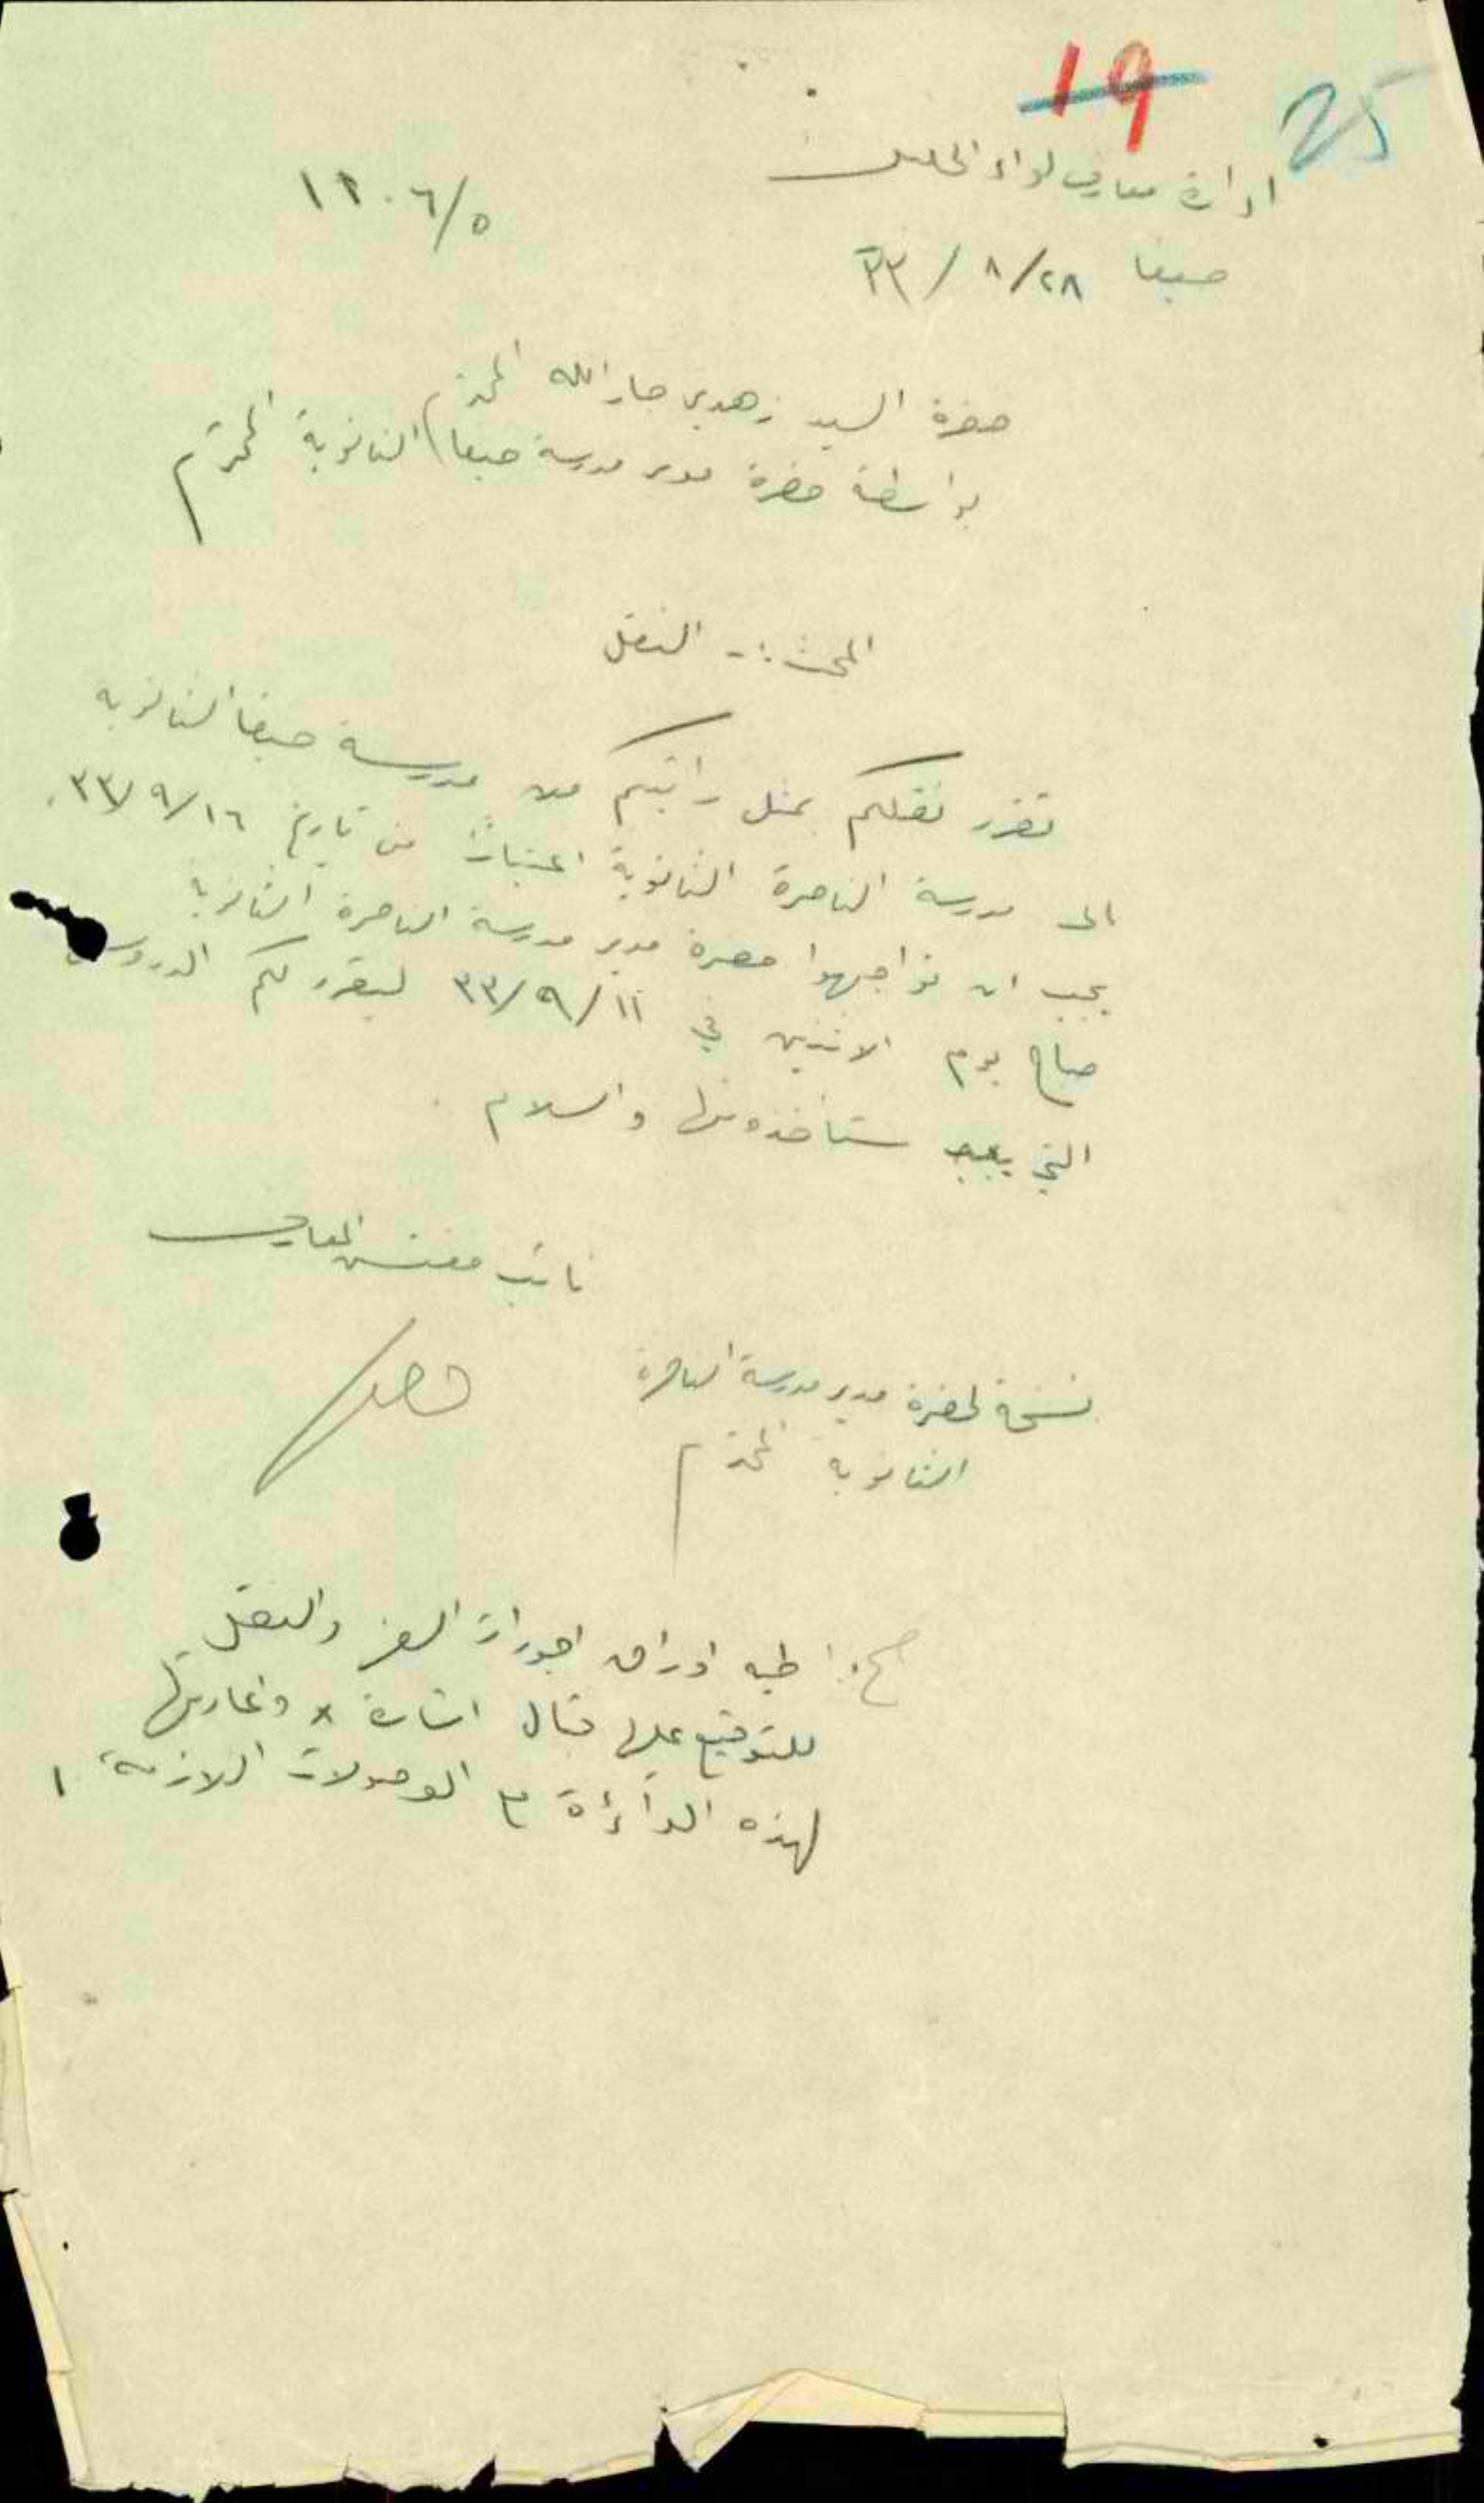 19 25
ادارة معارف لواء الجليل
١٢٠٦/٥
حيفا ٢٨/٨/٣٣
حضرة السيد زهدي جار الله المحترم
بواسطة حضرة مدير مدرسة حيفا الثانوية المحترم
المبحث :- النقل
تقرر نقلكم بمثل راتبكم من مدرسة حيفا الثانوية
الى مدرسة الناصرة الثانوية اعتبارًا من تاريخ ١٦/٩/٣٣.
يجب ان تواجهوا حضرة مدير مدرسة الناصرة الثانوية
صباح يوم الاثنين في ١١/٩/٣٣ ليقرر لكم الدروس
التي ستاخذونها والسلام .
نائب مفتش المعارف
نسخة لحضرة مدير مدرسة الناصرة
الثانوية المحترم
طيه اوراق اجورات السفر والنقل
للتوقيع عليها قبال اشارة x واعادتها
لهذه الدائرة مع الوصولات اللازمة